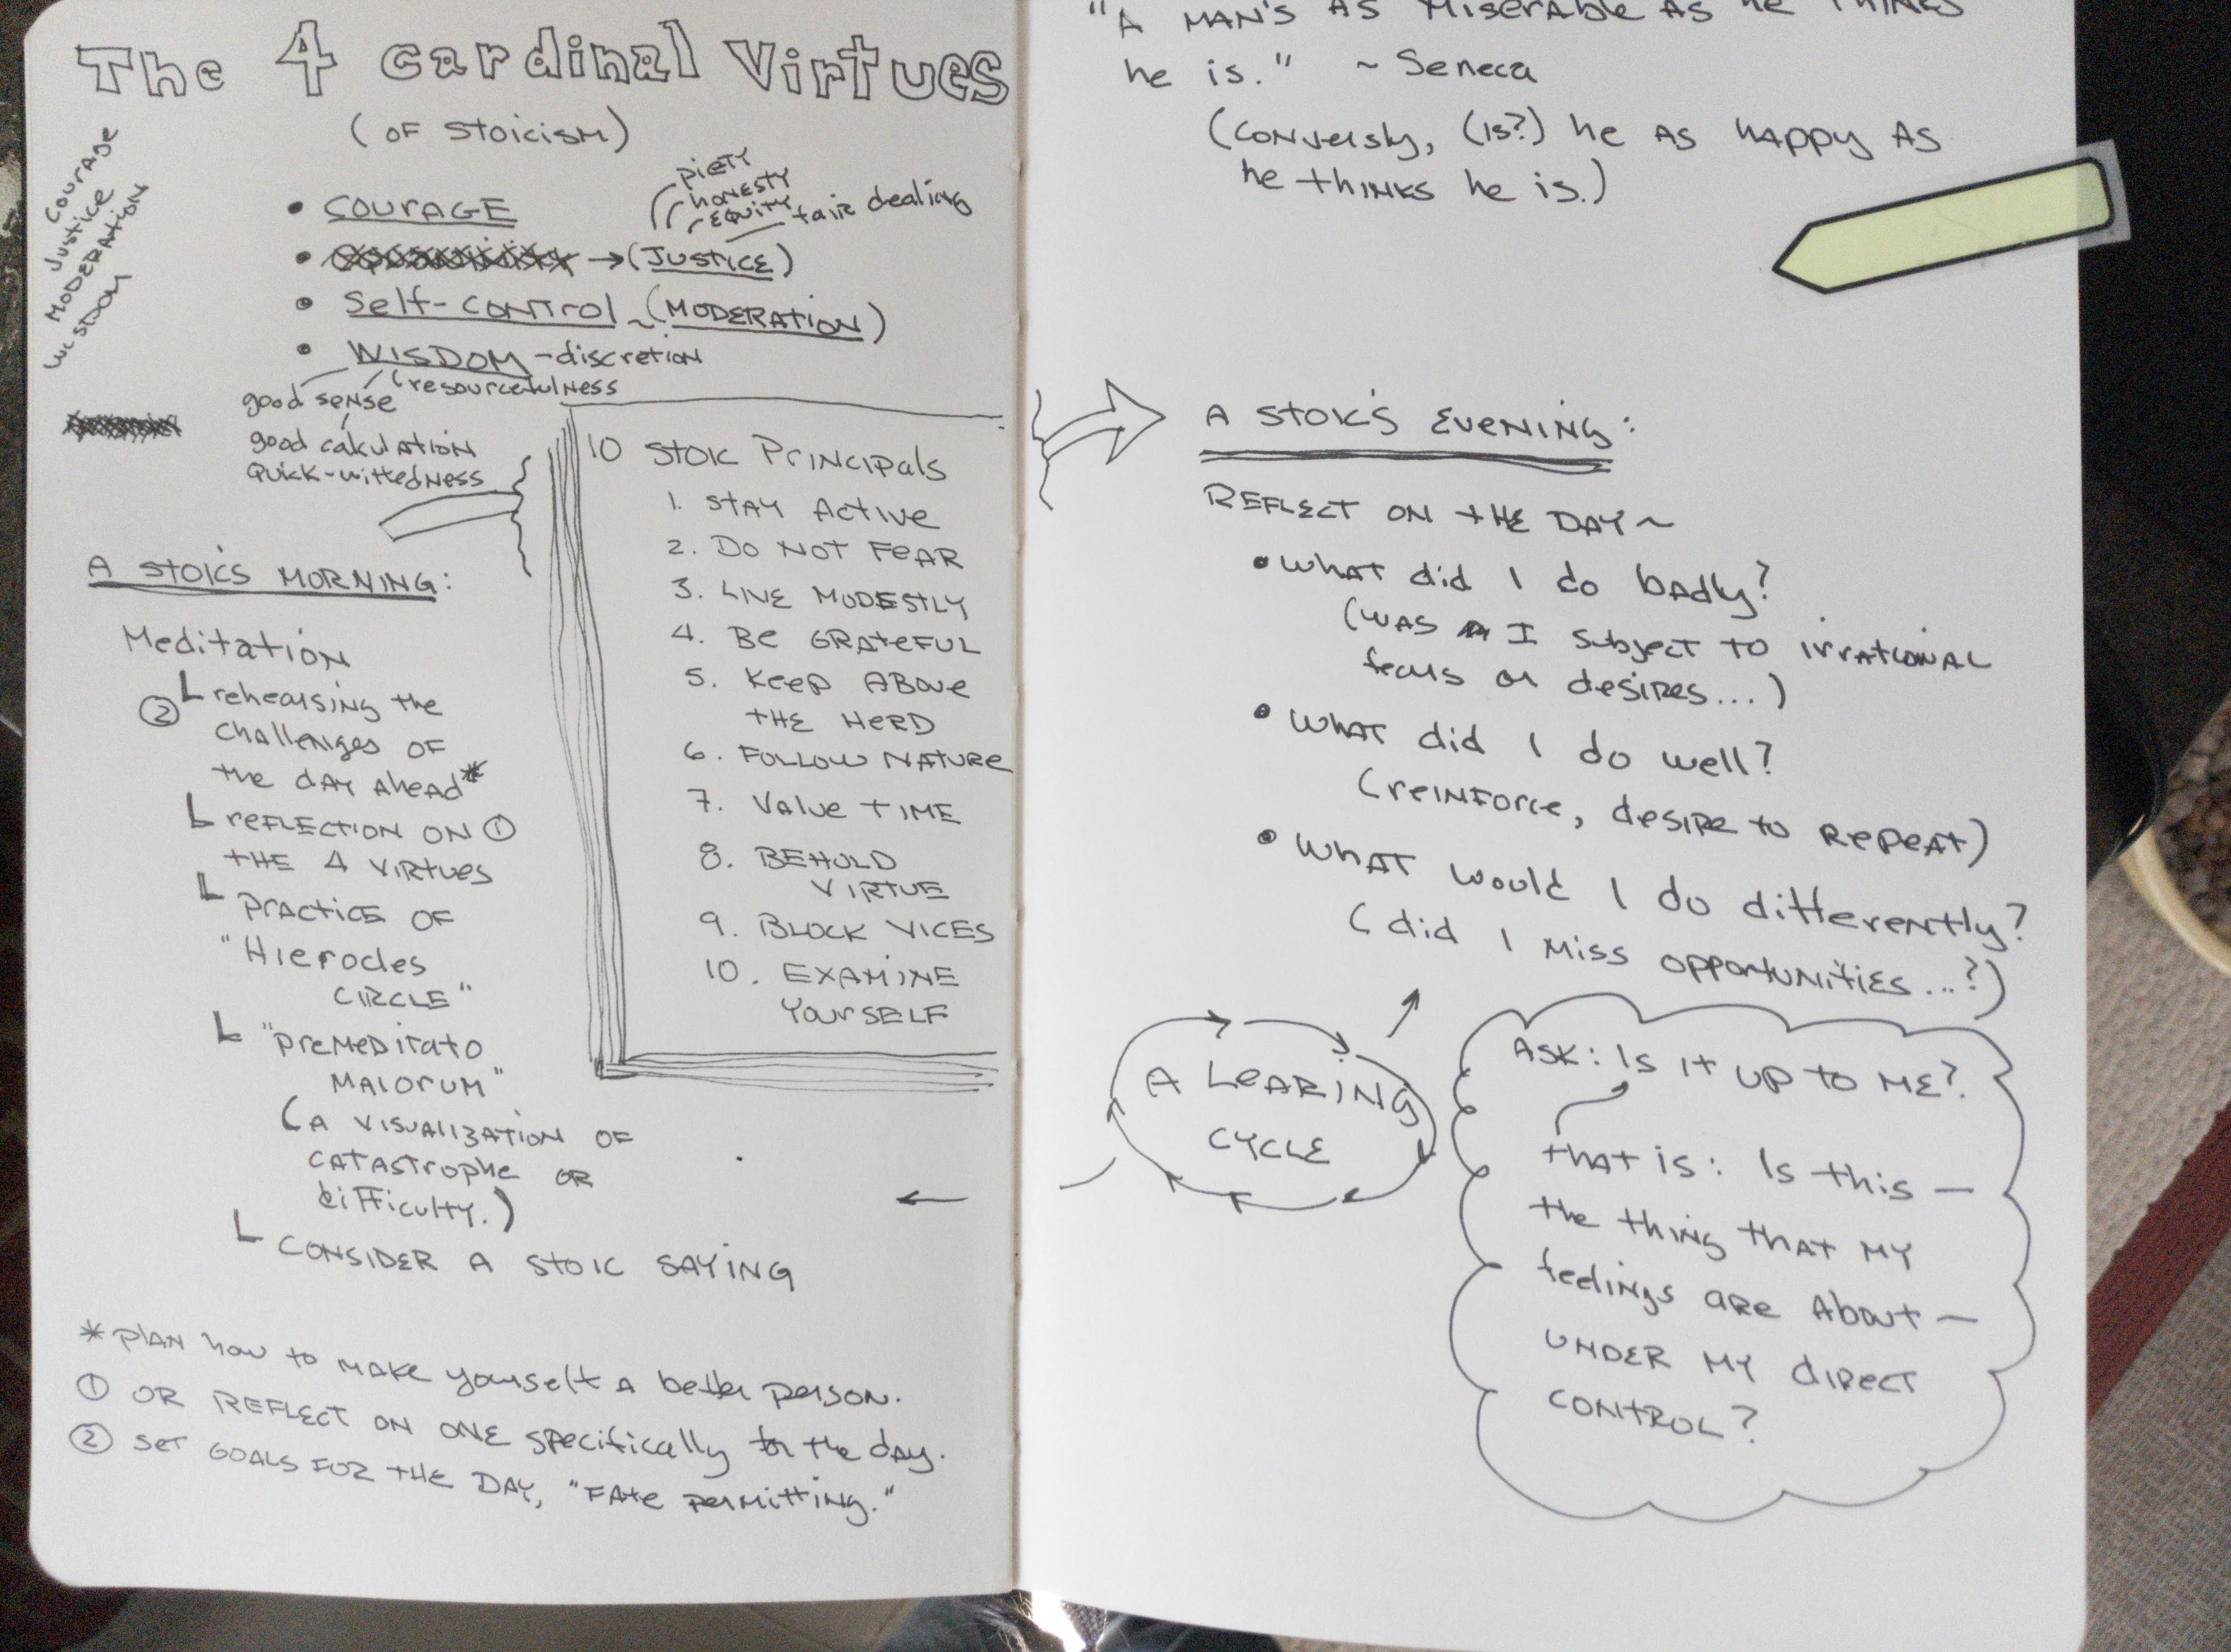 The 4 Cardinal Virtues
(OF STOICISM)
COURAGE
JUSTICE
MODERATION
WISDOM
• COURAGE
piety
honesty
equity
fair dealing
• → (JUSTICE)
• Self-control ~ (MODERATION)
• WISDOM - discretion
(resourcefulness
good sense
good calculation
quick-wittedness
10 Stoic Principals
1. Stay Active
2. Do not fear
3. Live modestly
4. Be grateful
5. Keep above
the herd
6. Follow nature
7. Value time
8. Behold
virtue
9. Block vices
10. Examine
yourself
A Stoic's Morning:
Meditation
② rehearsing the
challenges of
the day ahead*
reflection on ①
the 4 virtues
practice of
"Hierocles
circle"
"premeditato
malorum"
(a visualization of
catastrophe or
difficulty.)
consider a stoic saying
* plan how to make yourself a better person.
① or reflect on one specifically for the day.
② set goals for the day, "fate permitting."
"A man's as miserable as he thinks
he is." ~ Seneca
(conversly, (is?) he as happy as
he thinks he is.)
A Stoic's Evening:
Reflect on the day ~
• What did I do badly?
(was I subject to irrational
fears or desires...)
• What did I do well?
(reinforce, desire to repeat)
• What would I do differently?
(did I miss opportunities...?)
A learing
cycle
Ask: Is it up to me?
that is: Is this —
the thing that my
feelings are about —
under my direct
control?